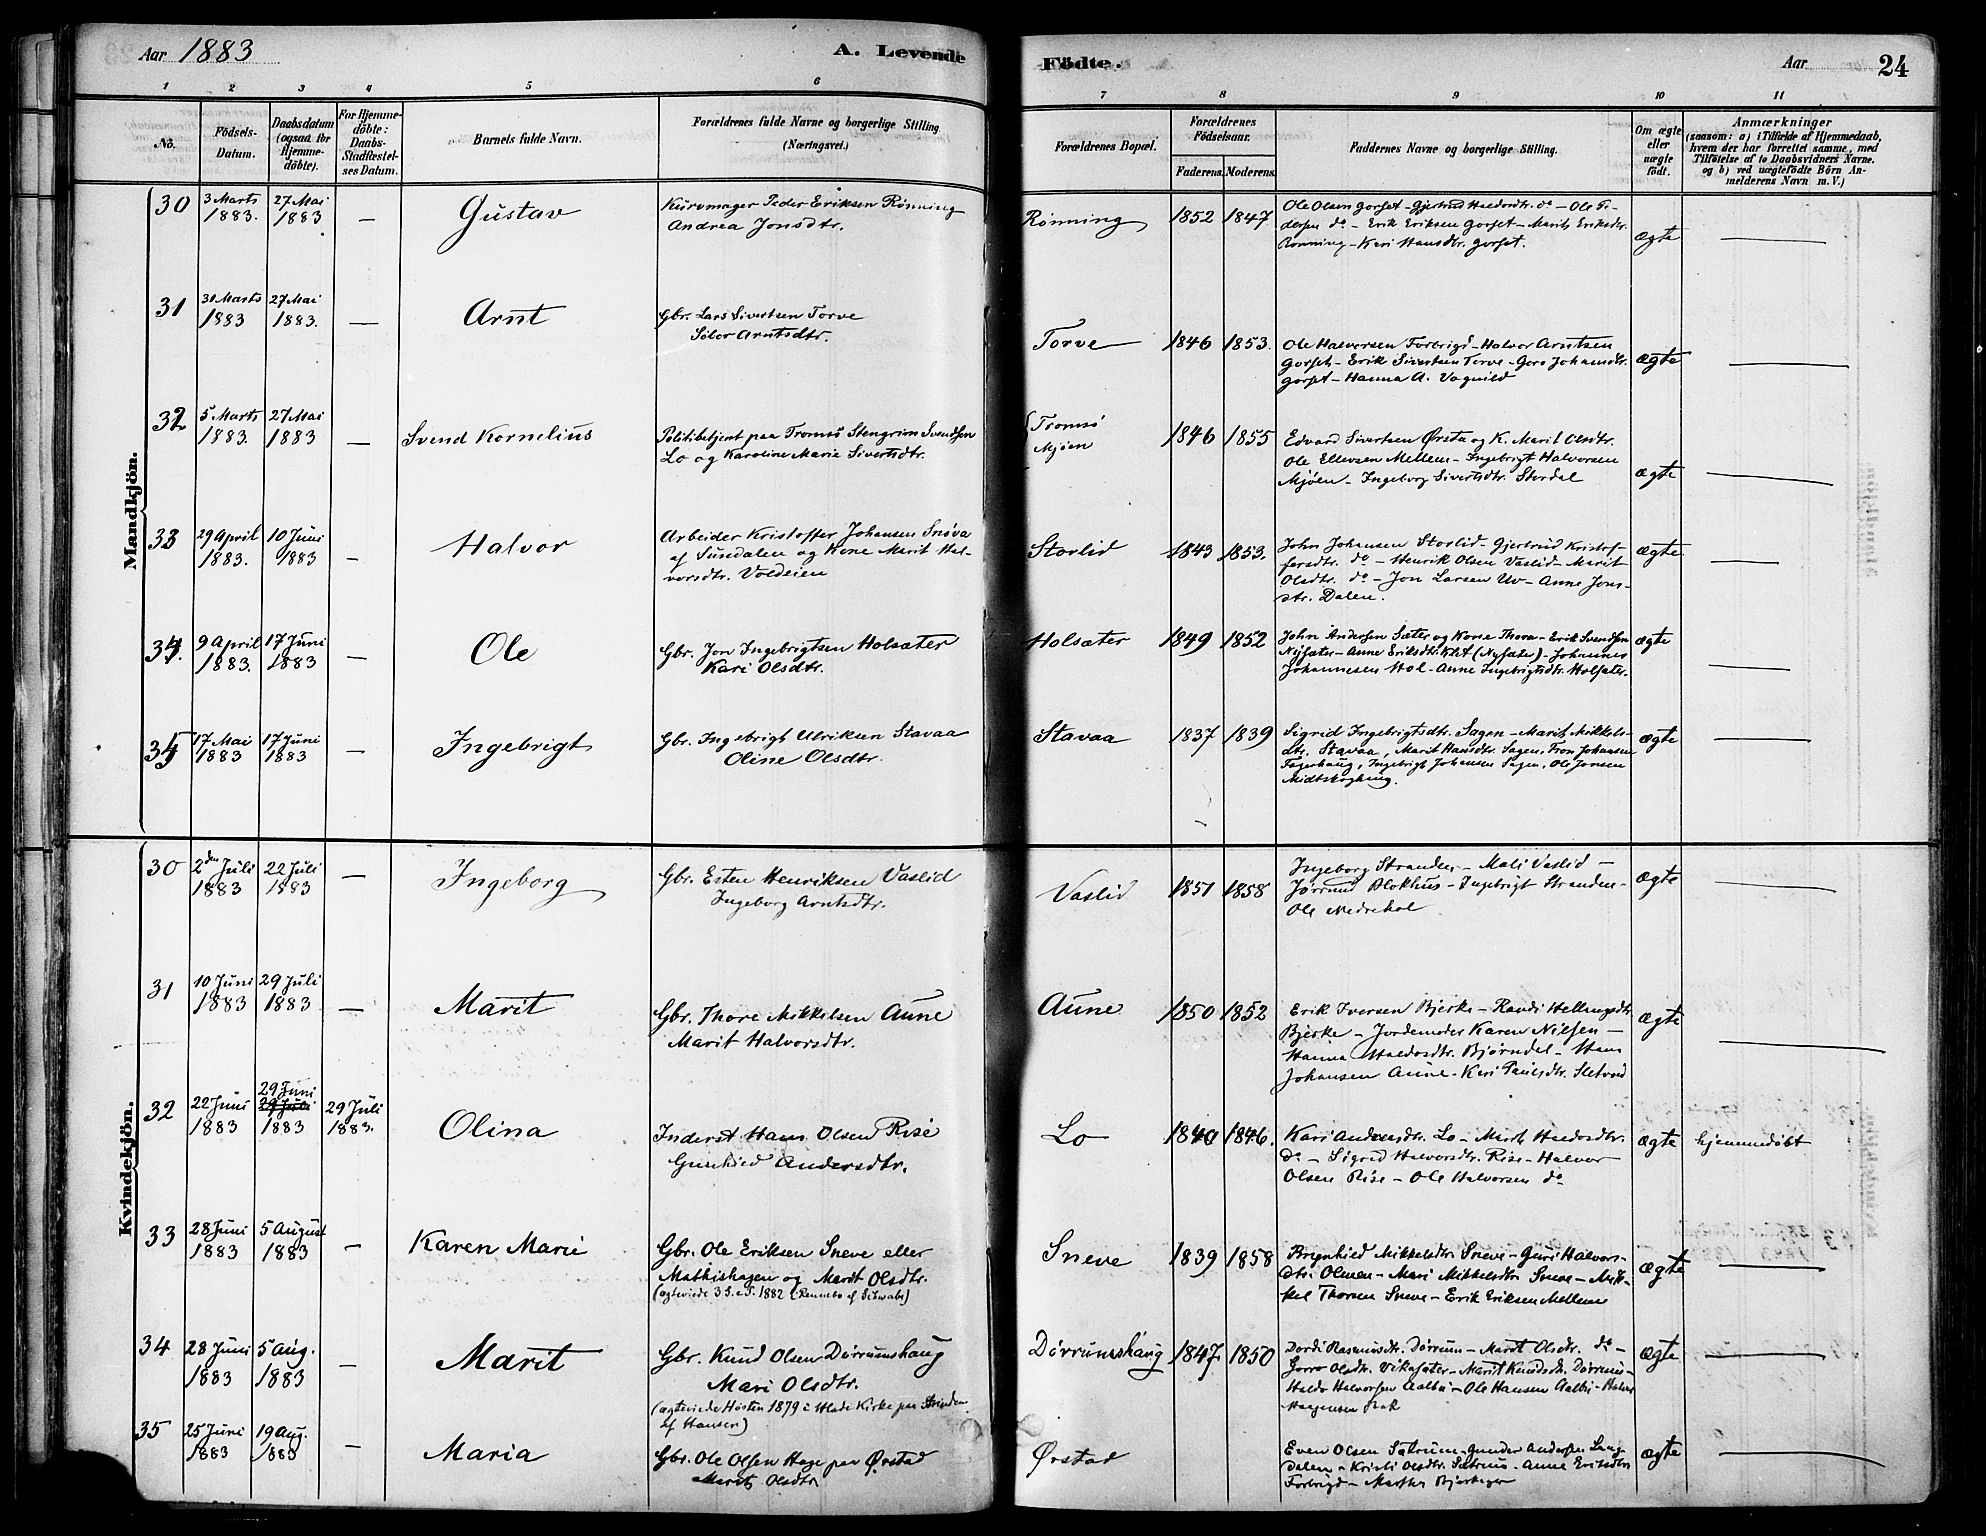 Aar 1883
A. Levende
Födte.
Aar
24
1 2 3 4 5 6
7 8 9 10 11
No.
Födsels-
Datum.
Daabsdatum
(ogsaa for
Hjemme-
döbte).
For Hjemme-
döbte:
Daabs-
Stadfæstel-
ses Datum.
Barnets fulde Navn.
Forældrenes fulde Navne og borgerlige Stilling
(Næringsvei.)
Forældrenes Bopæl.
Forældrenes
Födselsaar.
Faderens. Moderens.
Faddernes Navne og borgerlige Stilling.
Om ægte
eller
uægte
født.
Anmærkninger
(saasom: a) i Tilfælde af Hjemmedaab,
hvem der har forrettet samme, med
Tilföielse af to Daabsvidners Navne.
og b) ved uægtefödte Börn An-
melderens Navn m. V.)
Mandkjön.
30
3 Marts
1883.
27 Mai
1883
—
Gustav
Kurvmager Peder Eriksen Rønning
Andrea Jonsdtr.
Rønning
1852 1847
Ole Olsen Gorset - Gjertrud Haldosdtr. do - Ole Pe-
dersen do - Erik Eriksen Gorset - Marit Eriksdtr.
Rønning - Kari Hansdtr. Gorset.
ægte
—
31
31 Marts
1883
27 Mai
1883.
—
Arnt
Gbr. Lars Sivertsen Torve
Søbor Arntsdtr.
Torve
1846 1853.
Ole Halvorsen Forbrigd - Halvor Arntsen
Gorset - Erik Sivertsen Torve - Goro Johansdtr.
Gorset - Hanna A. Vognild
ægte
—
32
5 Marts
1883.
27 Mai
1883
—
Svend Kornelius
Politibetjent paa Tromsø Stengrim Svendsen
Lo og Karoline Marie Sivertsdtr.
Tromsø
Mjøen
1846 1855
Edvard Sivertsen Ørsta og K. Marit Olsdtr.
Ole Ellevsen Mellem - Ingebrigt Halvorsen
Mjöen - Ingeborg Sivertsdtr. Stordal
ægte
—
33
29 April
1883.
10 Juni
1883
—
Halvor
Arbeider Kristoffer Johansen Snøva
af Sundalen og Kone Marit Hal-
vorsdtr. Voldeien
Storlid
1843 1853.
John Johansen Storlid - Gjertrud Kristof-
fersdtr. do - Henrik Olsen Vaslid - Marit
Olsdtr. do - Jon Larsen Uv - Anne Jons-
dtr. Dalen.
ægte
—
34.
9 April
1883.
17 Juni
1883
—
Ole
Gbr. Jon Ingebrigtsen Holsæter
Kari Olsdtr.
Holsæter
1849 1852
John Andersen Sæter og Kone Thora - Erik Svendsen
Nysæter - Anne Eriksdtr. Klet (Nysæter) - Johannes
Johannesen Hol - Anne Ingebrigtsdtr. Holsæter.
ægte
—
35
17 Mai
1883
17 Juni
1883
—
Ingebrigt
Gbr. Ingebrigt Ulriksen Stavaa
Oline Olsdtr.
Stavaa
1837 1839
Sigrid Ingebrigtsdtr. Sagen - Marit Mikkels-
dtr. Stavaa, Marit Hansdtr. Sagen, Tron Johansen
Fagerhaug, Ingebrigt Johansen Sagen, Ole Jonsen
Midtskoghaug.
ægte
—
Kvindekjön.
30
2den Juli
1883
22 Juli
1883
—
Ingeborg
Gbr. Esten Henriksen Vaslid
Ingeborg Arntsdtr.
Vaslid
1851 1858
Ingeborg Stranden - Mali Vaslid -
Jørrund Blokhus - Ingebrigt Stranden -
Ole Nedrehol
ægte
—
31
10 Juni
1883
29 Juli
1883
—
Marit
Gbr. Thore Mikkelsen Aune
Marit Halvorsdtr.
Aune
1850 1852
Erik Iversen Bjerke - Randi
Bjerke - Jordemoder Karen Nielsen -
Hanna Haldosdtr. Bjørndal - Hans
Johansen Aune - Kari Paulsdtr. Sletvold
ægte
—
32
22 Juni
1883
29 Juni
29 Juli
1883
29 Juli
1883.
Olina
Inderst Hans Olsen Rise
Gunhild Andersdtr.
Lo
1840 1846.
Kari Andersdtr. Lo - Marit Haldosdtr.
do - Sigrid Halvorsdtr. Rise - Halvor
Olsen Rise - Ole Halvorsen do
ægte
hjemmedøbt
33
28 Juni
1883
5 August
1883
—
Karen Marie
Gbr. Ole Eriksen Sneve eller
Mathishagen og Marit Olsdtr.
(ægteviede 1882 i Rennebo af Schwabe)
Sneve
1839 1858
Brynhild Mikkelsdtr. Sneve - Guri Halvors-
dtr. Olmen - Mari Mikkelsdtr. Sneve - Mik-
kel Thoresen Sneve - Erik Eriksen Mellem
ægte
—
34
28 Juni
1883
5 Aug.
1883
—
Marit
Gbr. Knud Olsen Dørrumshaug
Mari Olsdtr.
(ægteviede Høsten 1879 i Hlade Kirke paa Strinden
af Hansen)
Dørrumshaug
1847 1850
Dordi Rasmusdtr. Dørrum - Marit Olsdtr. do -
Goro Olsdtr. Viksæter - Marit Knudsdtr. Dørrum -
Haldo Halvorsen Aalbu - Ole Hansen Aalbu -
ægte
—
35
25 Juni
1883
19 Aug.
1883
—
Maria
Gbr. Ole Olsen Hage paa Ørstad
Marit Olsdtr.
Ørstad
Even Olsen Sætrum - Gunder Andersen
Dalen - Kristi Olsdtr. Sætrum - Anne Eriksdtr.
Forbrigd - Marthe Bjerkager
ægte
—